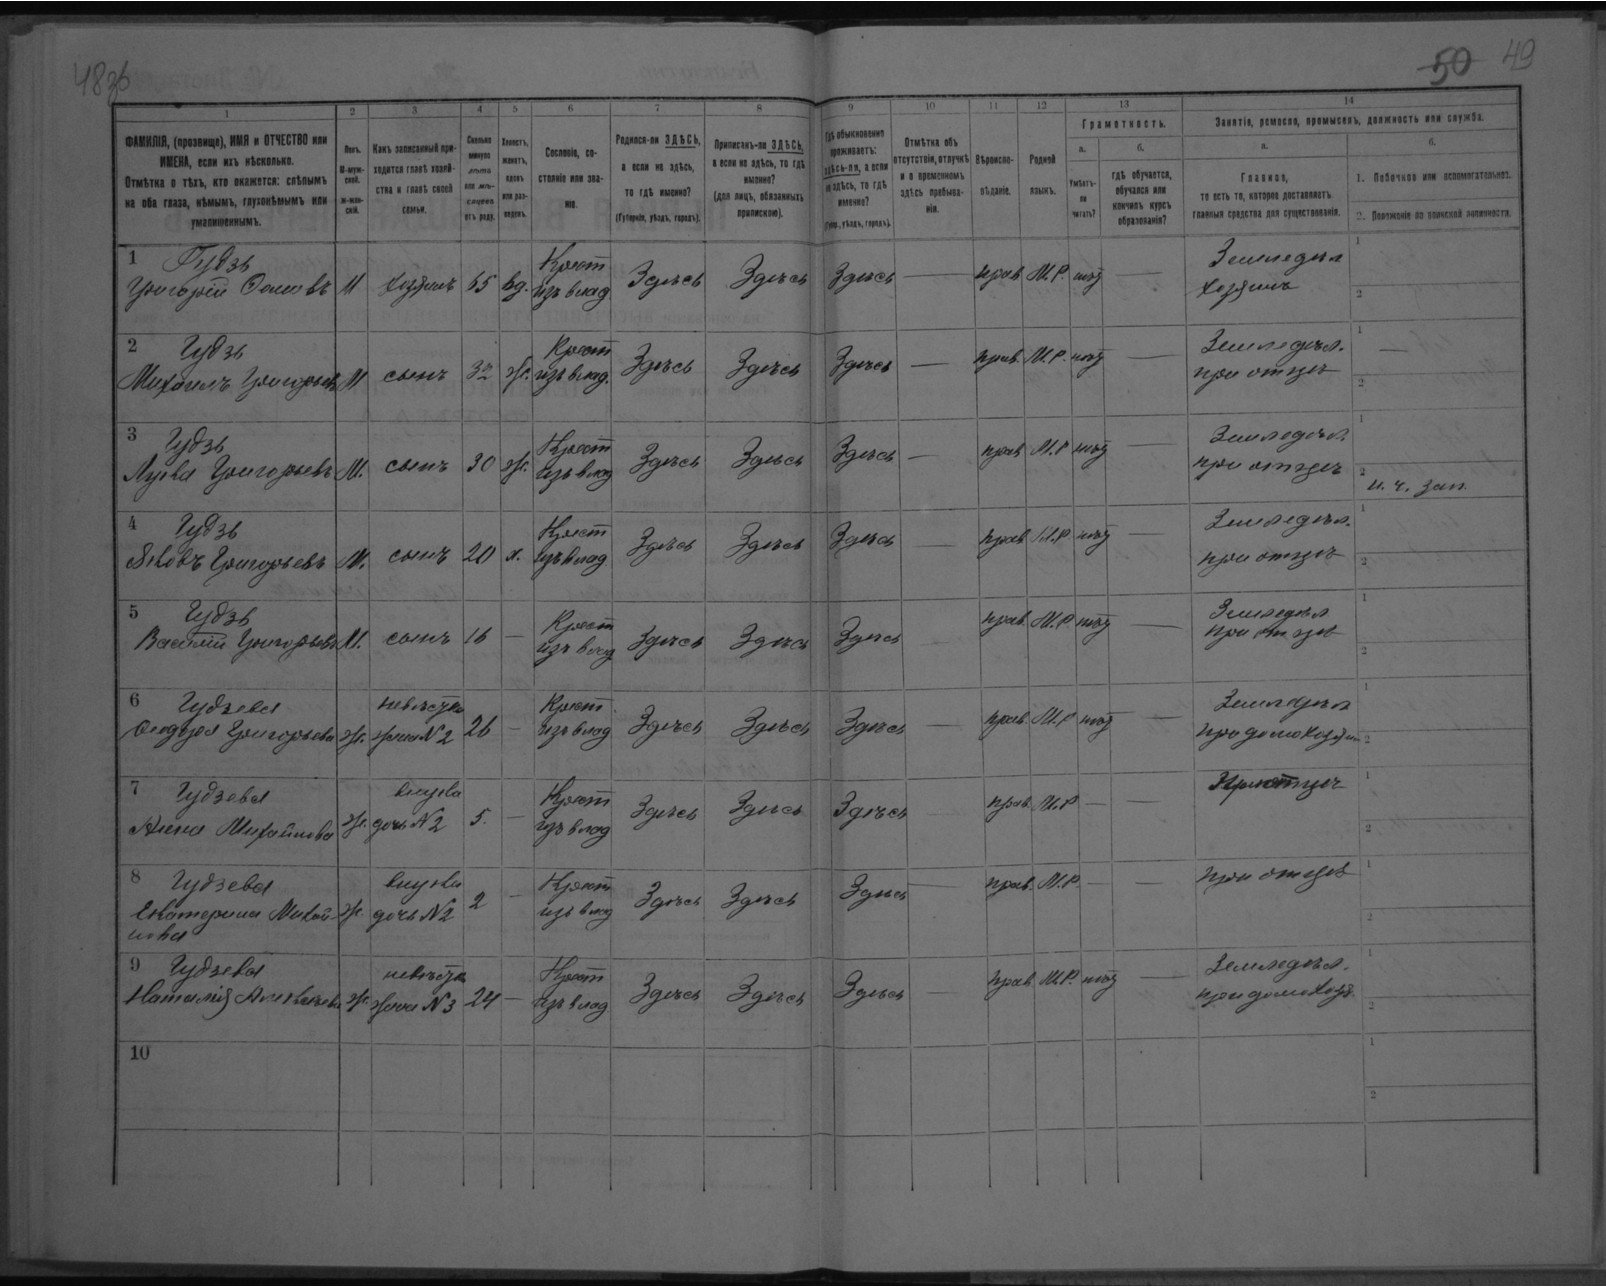 48зв
50 49
1 2 3 4 5 6 7 8 9 10 11 12 13 14
ФАМИЛІЯ, (прозвище), ИМЯ и ОТЧЕСТВО или
ИМЕНА, если ихъ нѣсколько.
Отмѣтка о тѣхъ, кто окажется: слѣпымъ
на оба глаза, нѣмымъ, глухонѣмымъ или
умалишеннымъ.
Полъ.
М-муж-
ской.
ж-жен-
скій.
Какъ записанный при-
ходится главѣ хозяй-
ства и главѣ своей
семьи.
Сколько
минуло
лѣтъ
или мѣ-
сяцевъ
отъ роду.
Холостъ,
женатъ,
вдовъ
или раз-
веденъ.
Сословіе, со-
стояніе или зва-
ніе.
Родился-ли ЗДѢСЬ,
а если не здѣсь,
то гдѣ именно?
(Губернія, уѣздъ, городъ).
Приписанъ-ли ЗДѢСЬ,
а если не здѣсь, то гдѣ
именно?
(для лицъ, обязанныхъ
припискою).
Гдѣ обыкновенно
проживаетъ:
здѣсь-ли, а если
не здѣсь, то гдѣ
именно?
(Губер., уѣздъ, городъ).
Отмѣтка объ
отсутствіи, отлучкѣ
и о временномъ
здѣсь пребыва-
ніи.
Вѣроиспо-
вѣданіе.
Родной
языкъ.
Грамотность.
а.
Умѣетъ-
ли
читать?
б.
гдѣ обучается,
обучался или
кончилъ курсъ
образованія?
Занятіе, ремесло, промыселъ, должность или служба.
а.
Главное,
то есть то, которое доставляетъ
главныя средства для существованія.
б.
1. Побочное или вспомогательное.
2. Положеніе по воинской повинности.
1 Гудзь Крест Земледѣл
Григорій М хозяинъ 65 вд. изъ влад Здѣсь Здѣсь Здѣсь — прав М.Р. нѣт — хозяинъ
2 Гудзь Крест Земледѣл.
Михаилъ Григорьевъ М сынъ 32 ж. изъ влад. Здѣсь Здѣсь Здѣсь — прав. М.Р. нѣт — при отцѣ
3 Гудзь Крест Земледѣл
Лука Григорьевъ М. сынъ 30 ж. изъ влад Здѣсь Здѣсь Здѣсь — прав М.Р нѣт — при отцѣ
н. ч. зап.
4 Гудзь Крест Земледѣл.
Яковъ Григорьевъ М. сынъ 20 х. изъ влад Здѣсь Здѣсь Здѣсь — прав М.Р нѣт — при отцѣ
5 Гудзь Крест Земледѣл
Василій Григорьевъ М. сынъ 16 — изъ влад Здѣсь Здѣсь Здѣсь — прав. М.Р нѣт — при отцѣ
6 Гудзева невѣстка Крест Земледѣл
Григорьева ж. жена N2 26 — изъ влад Здѣсь Здѣсь Здѣсь — прав. М.Р нѣт —
7 Гудзева внука Крест При отцѣ
Анна Михайлова ж. дочь N2 5. — изъ влад Здѣсь Здѣсь Здѣсь — прав. М.Р — —
8 Гудзева внука Крест при отцѣ
Екатерина Михай ж. дочь N2 2 — изъ влад Здѣсь Здѣсь Здѣсь — прав. М.Р. — —
лова
9 Гудзева невѣстка Крест Земледѣл.
Наталія ж. жена N3 24 — изъ влад Здѣсь Здѣсь Здѣсь — прав М.Р. нѣт — при домохозя
10